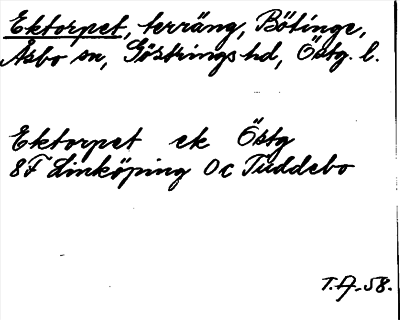 Ektorpet, terräng, Bötinge,
Åsbo sn, Göstrings hd, Östg. l.
Ektorpet ek Östg
8F Linköping 0c Tuddebo
T. A. -58.